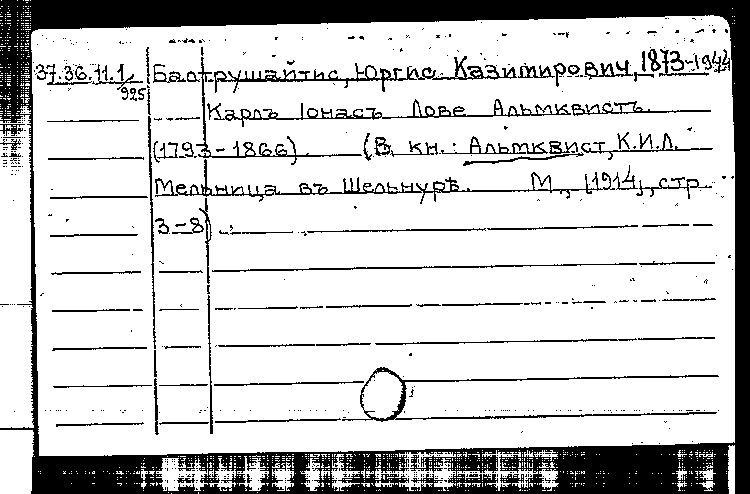 37.36.11.1 Балтрушайтис, Юргис Казимирович, 1873-1944
925
Карлъ Іонасъ Лове Альмквистъ.
(1793-1866). (В кн.: Альмквист, К.И.Л.
Мельница въ Шельнурѣ. М., [1914], стр
3-8).